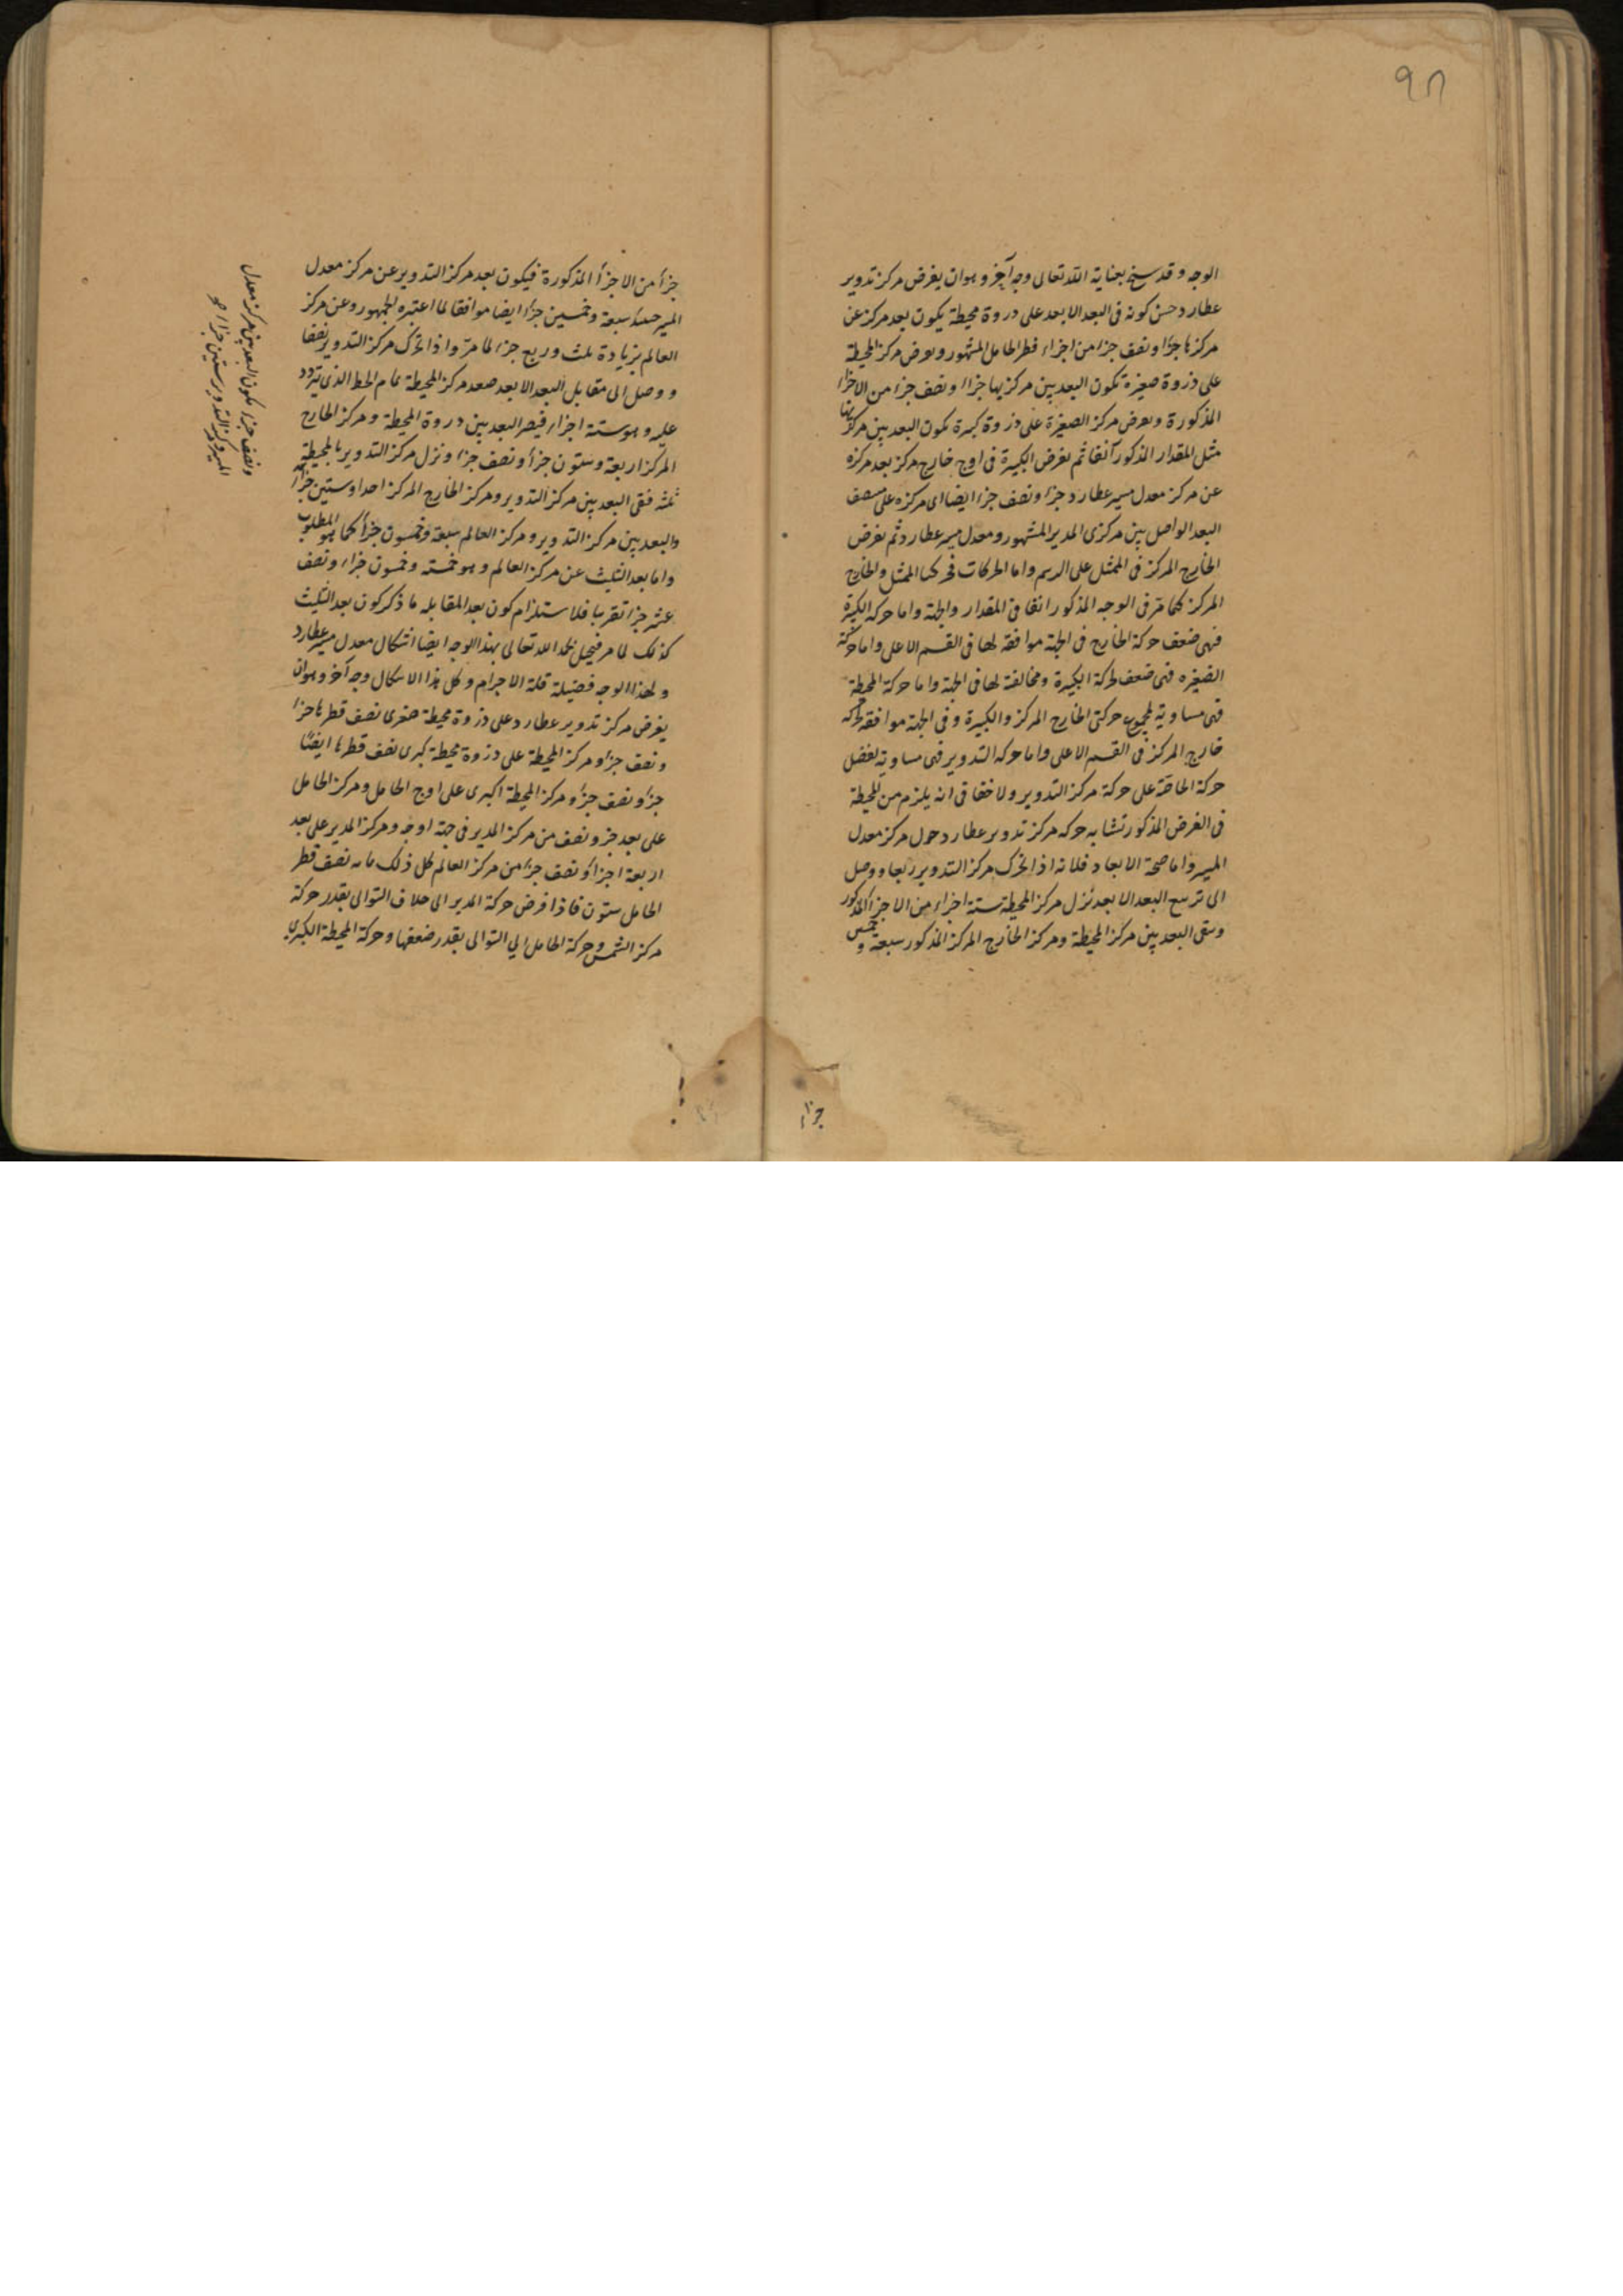 ٩٨
الوجه وقد سنح بعناية الله تعالى وجه آخر وهو ان يفرض مركز تدوير
عطارد حين كونه فى البعد الابعد على دروة محيطة يكون بعد مركز عن
مركزها جزءا ونصف جزء من اجزاء قطر الحامل المشهور ويفرض مركز المحيطة
على ذروة صغيرة تكون البعد بين مركزيها جزءا ونصف جزء من الاجزاء
المذكورة ويفرض مركز الصغيرة على ذروة كبيرة يكون البعد بين مركزيها
مثل المقدار المذكور آنفا ثم نفرض الكبيرة فى اوج خارج مركز بعد مركزه
عن مركز معدل مسير عطارد جزءا ونصف جزء ايضا اى مركزه على منتصف
البعد الواصل بين مركزى المدير المشهور ومعدل مسير عطارد ثم نفرض
الخارج المركز فى الممثل على الرسم واما الحركات فحركتا الممثل والخارج
المركز كما مر فى الوجه المذكور انفا فى المقدار والجهة واما حركة الكبيرة
فهى ضعف حركة الخارج فى الجهة موافقة لها فى القسم الاعلى واما حركة
الصغيره فهى ضعف لحركة الكبيرة ومخالفة لها فى الجهة واما حركة المحيطة
فهى مساوية لمجموع حركتى الخارج المركز والكبيرة وفى الجهة موافقة لحركه
خارج المركز فى القسم الاعلى واما حركه التدوير فهى مساوية لفضل
حركة الخاصة على حركة مركز التدوير ولا خفا فى انه يلزم من المحيطة
فى الفرض المذكور تشابه حركه مركز تدوير عطارد حول مركز معدل
المسير واما صحة الابعاد فلانه اذا تحرك مركز التدوير ربعا ووصل
الى تربيع البعد الابعد نزل مركز المحيطة ستة اجزاء من الاجزاء المذكور
وبقى البعد بين مركز المحيطة ومركز الخارج المركز المذكور سبعة و خمسين
جزءا
جزءا من الاجزاء المذكورة فيكون بعد مركز التدوير عن مركز معدل
المسير حينئذ سبعة وخمسين جزءا ايضا موافقا لما اعتبره الجمهور وعن مركز
العالم بزيادة ثلث وربع جزء لما مر واذا تحرك مركز التدوير نصفا
ووصل الى مقابل البعد الابعد صعد مركز المحيطة تمام الخط الذى تردد
عليه وهو ستة اجزاء فيصر البعد بين دروة المحيطة ومركز الخارج
المركز اربعة وستون جزءا ونصف جزء ونزل مركز التدوير بالمحيطة
ثلثه فبقى البعد بين مركز التدوير ومركز الخارج المركز احدا وستين جزءا
والبعد بين مركز التدوير ومركز العالم سبعة وخمسون جزءا كما هو المطلوب
واما بعد التثليث عن مركز العالم وهو خمسة وخمسون جزءا ونصف
عشر جزء تقريبا فلاستلزام كون بعد المقابله ما ذكر كون بعد التثليث
كذلك لما مر فينحل بحمد الله تعالى بهذا الوجه ايضا اشكال معدل مسير عطارد
ولهذا الوجه فضيلة قلة الاجرام ولحل هذا الاشكال وجه آخر وهو ان
يفرض مركز تدوير عطارد على ذروة محيطة صغرى نصف قطرها جزء
ونصف جزء ومركز المحيطة على ذروة محيطة كبرى نصف قطرها ايضا
جزء ونصف جزء ومركز المحيطة الكبرى على اوج الحامل ومركز الحامل
على بعد جزء ونصف من مركز المدير فى جهة اوجه ومركز المدير على بعد
اربعة اجزاء ونصف جزء من مركز العالم كل ذلك ما به نصف قطر
الحامل ستون فاذا فرض حركة المدير الى خلاف التوالى بقدر حركة
مركز الشمس وحركة الحامل الى التوالى بقدر ضعفها وحركة المحيطة الكبرى
ونصف جزء يكون البعد بين مركز معدل
المسير ومركز التدوير ستين جزءا